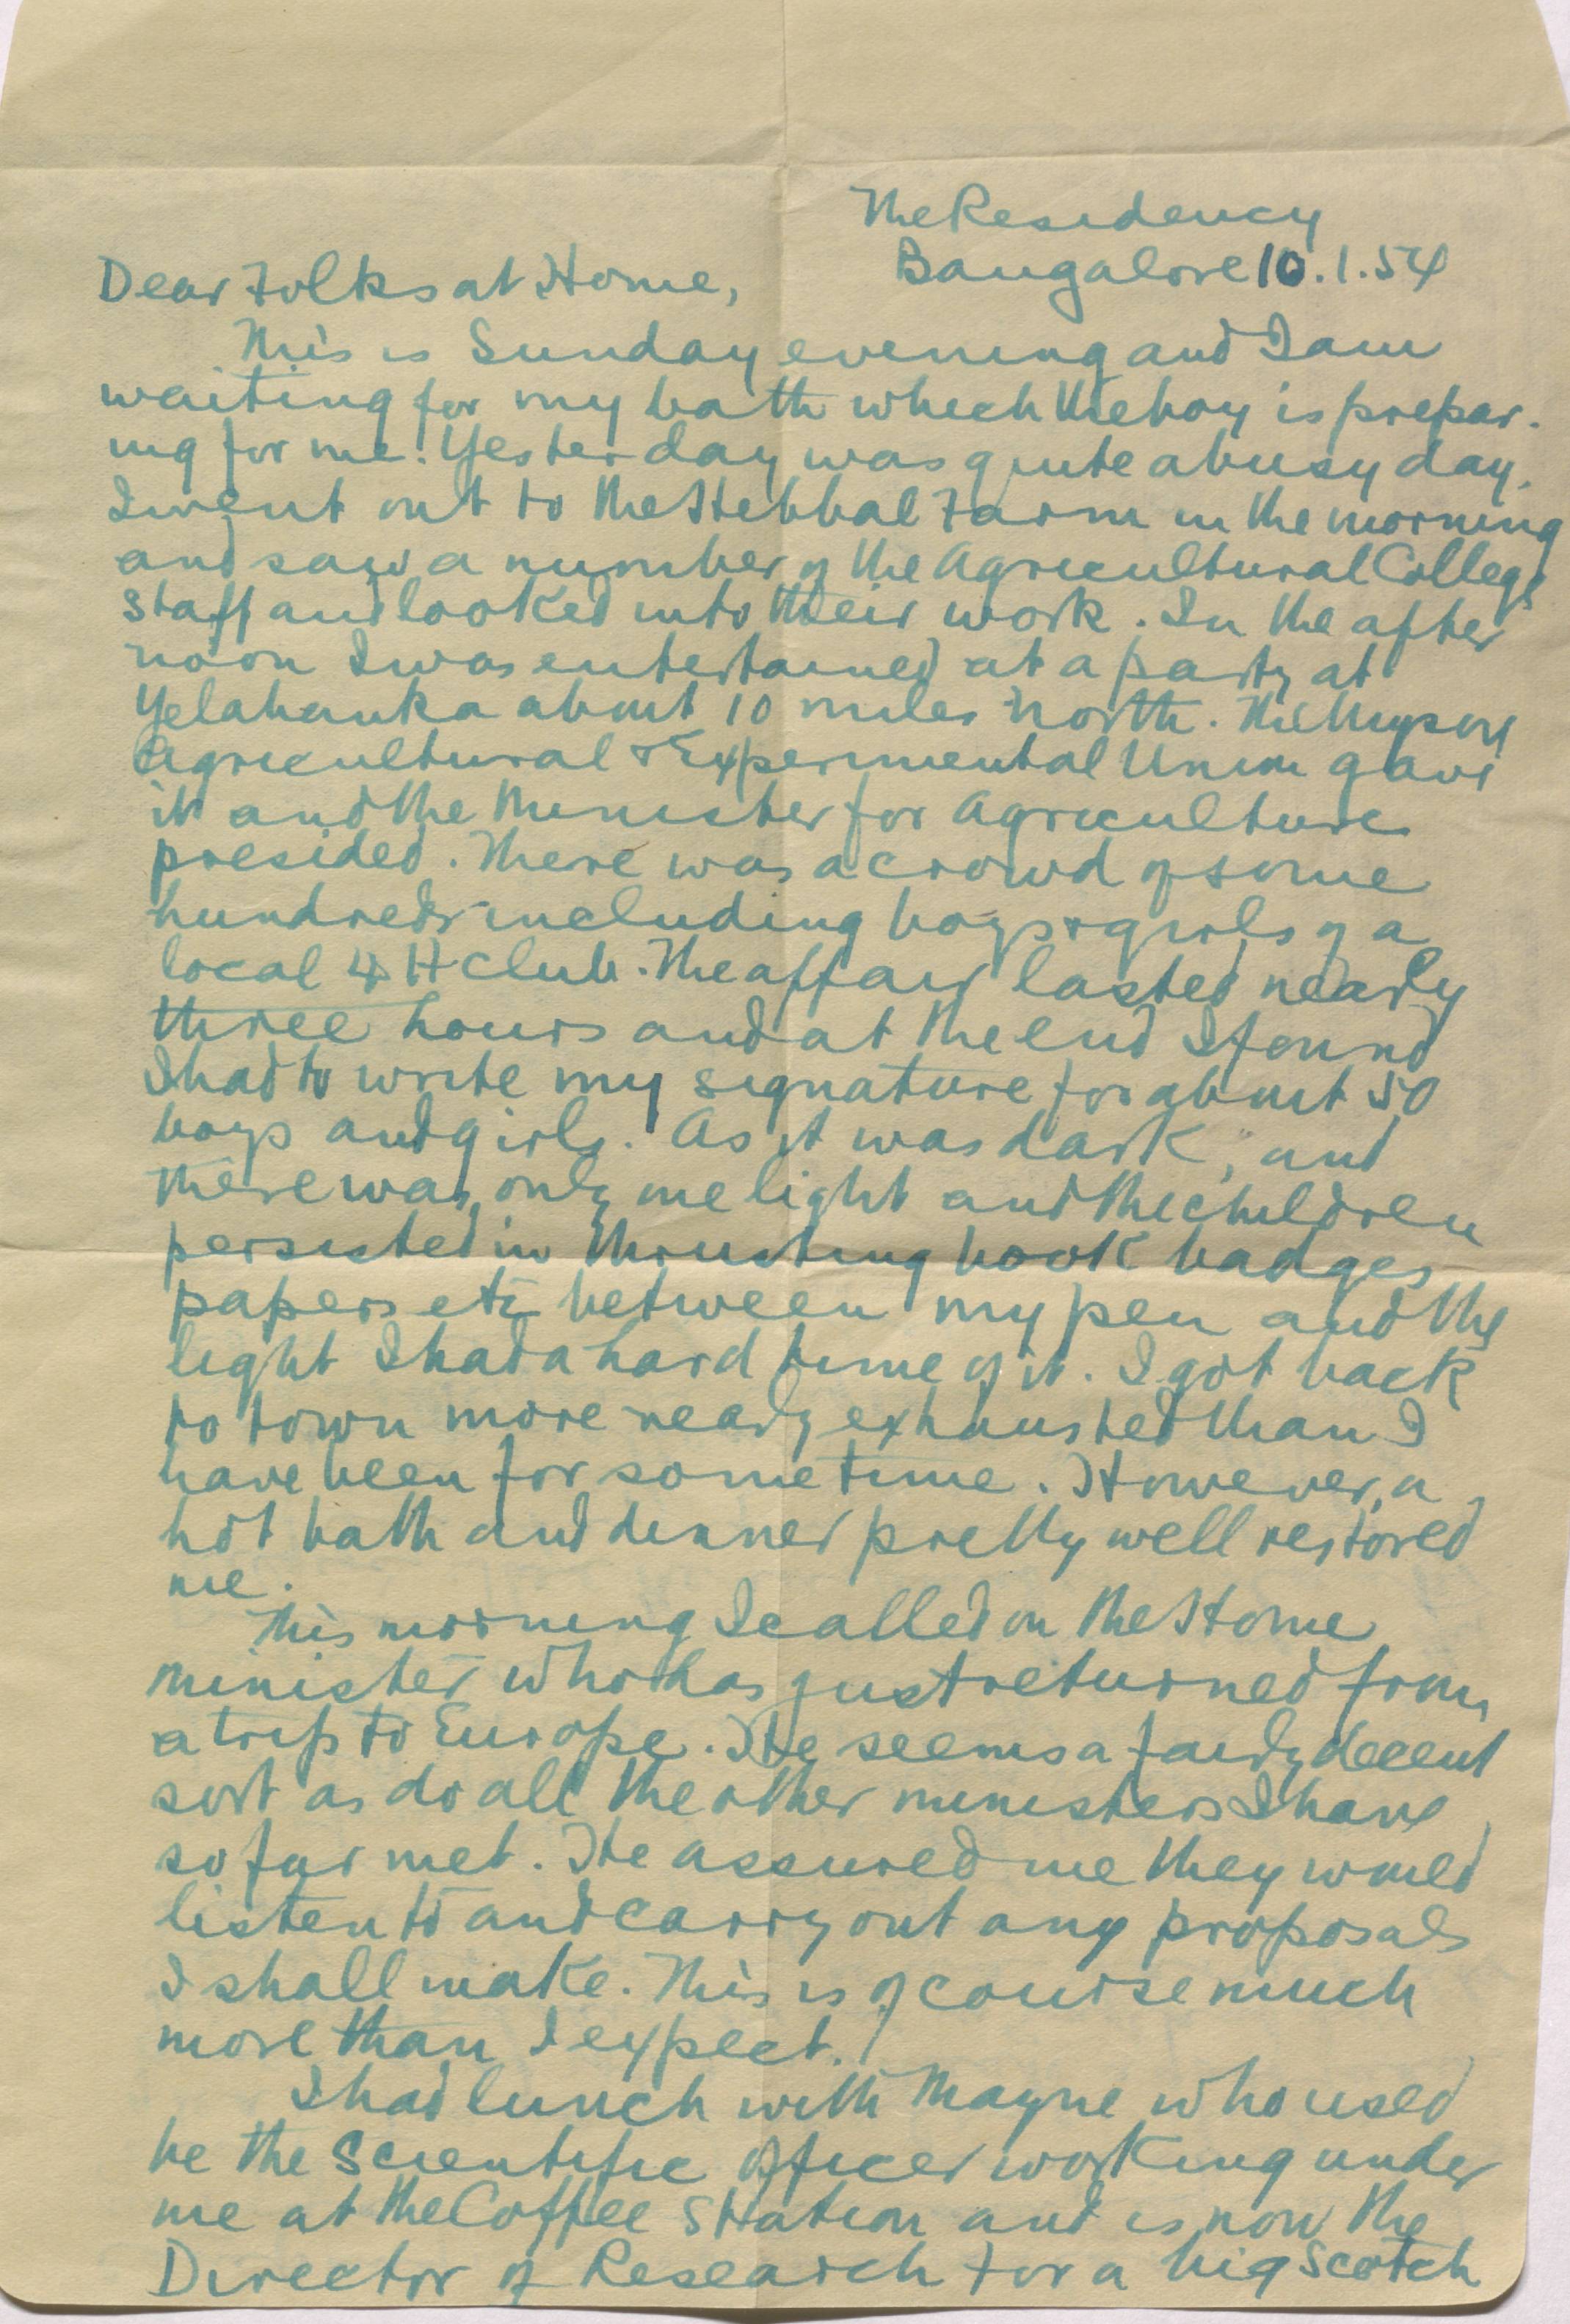 The Residency
Bangalore 10.1.54
Dear Folks at Home,
This is Sunday evening and I am
waiting for my bath which the boy is prepar-
ing for me. Yesterday was quite a busy day.
I went out to the Hebbal Farm in the morning
and saw a number of the Agricultural College
staff and looked into their work. In the after
noon I was entertained at a party at
Yelahanka about 10 miles north. The Mysore
Agricultural & Experimental Union gave
it and the Minister for Agriculture
presided. There was a crowd of some
hundreds including boys & girls of a
local 4 H club. The affair lasted nearly
three hours and at the end I found
I had to write my signature for about 50
boys and girls. As it was dark, and
there was only one light and the children
persisted in thrusting book badges
papers etc between my pen and the
light I had a hard time of it. I got back
to town more nearly exhausted than I
have been for some time. However, a
hot bath and dinner pretty well restored
me.
This morning I called on the Home
Minister who has just returned from
a trip to Europe. He seems a fairly decent
sort as do all the other ministers I have
so far met. He assured me they would
listen to and carry out any proposals
I shall make. This is of course much
more than I expect.
I had lunch with Mayne who used
be the Scientific Officer working under
me at the Coffee Station and is now the
Director of Research for a big Scotch